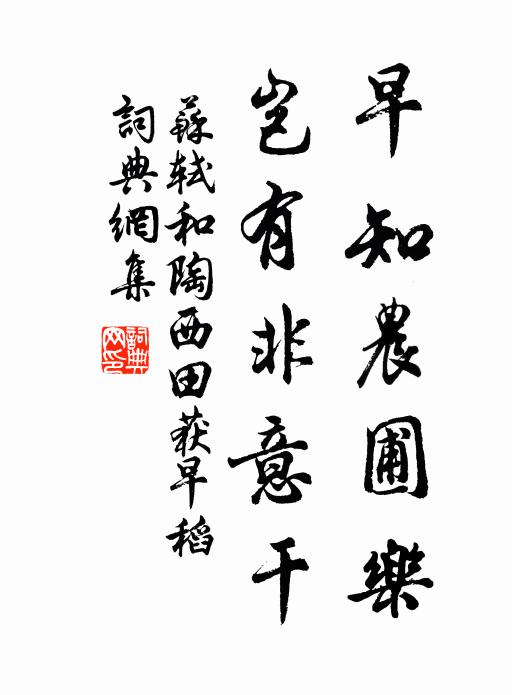 早知農圃樂
豈有非意干
蘇軾和陶西田获早稻
詞典網集
詞典
网印